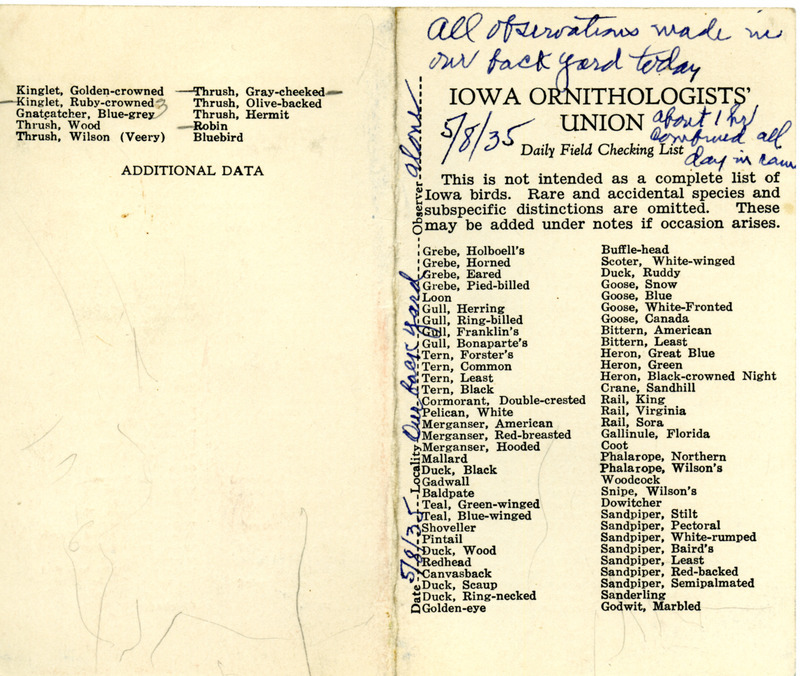 Kinglet, Golden-crowned
Kinglet, Ruby-crowned 3
Gnatcatcher, Blue-grey
Thrush, Wood
Thrush, Wilson (Veery)
Thrush, Gray-cheeked
Thrush, Olive-backed
Thrush, Hermit
Robin
Bluebird
ADDITIONAL DATA
All observations made in
our back yard today
IOWA ORNITHOLOGISTS'
UNION
5/8/35
about 1 hr
combined all
day in
Daily Field Checking List
This is not intended as a complete list of
Iowa birds. Rare and accidental species and
subspecific distinctions are omitted. These
may be added under notes if occasion arises.
Date 5/8/35 Locality Our back yard Observer alone
Grebe, Holboell's
Grebe, Horned
Grebe, Eared
Grebe, Pied-billed
Loon
Gull, Herring
Gull, Ring-billed
Gull, Franklin's
Gull, Bonaparte's
Tern, Forster's
Tern, Common
Tern, Least
Tern, Black
Cormorant, Double-crested
Pelican, White
Merganser, American
Merganser, Red-breasted
Merganser, Hooded
Mallard
Duck, Black
Gadwall
Baldpate
Teal, Green-winged
Teal, Blue-winged
Shoveller
Pintail
Duck, Wood
Redhead
Canvasback
Duck, Scaup
Duck, Ring-necked
Golden-eye
Buffle-head
Scoter, White-winged
Duck, Ruddy
Goose, Snow
Goose, Blue
Goose, White-Fronted
Goose, Canada
Bittern, American
Bittern, Least
Heron, Great Blue
Heron, Green
Heron, Black-crowned Night
Crane, Sandhill
Rail, King
Rail, Virginia
Rail, Sora
Gallinule, Florida
Coot
Phalarope, Northern
Phalarope, Wilson's
Woodcock
Snipe, Wilson's
Dowitcher
Sandpiper, Stilt
Sandpiper, Pectoral
Sandpiper, White-rumped
Sandpiper, Baird's
Sandpiper, Least
Sandpiper, Red-backed
Sandpiper, Semipalmated
Sanderling
Godwit, Marbled